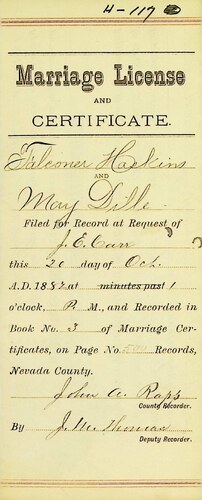 4-119
Marriage License
AND
CERTIFICATE.
Falconer Haskins
AND
May Dille
Filed for Record at Request of
J. E. Carr
this 20 day of Oct.
A.D. 1882 at minutes past 1
o'clock, P. M., and Recorded in
Book No. 3 of Marriage Cer-
tificates, on Page No. Records,
Nevada County.
John A. Rapp
County Recorder.
By J. M. Thomas
Deputy Recorder.